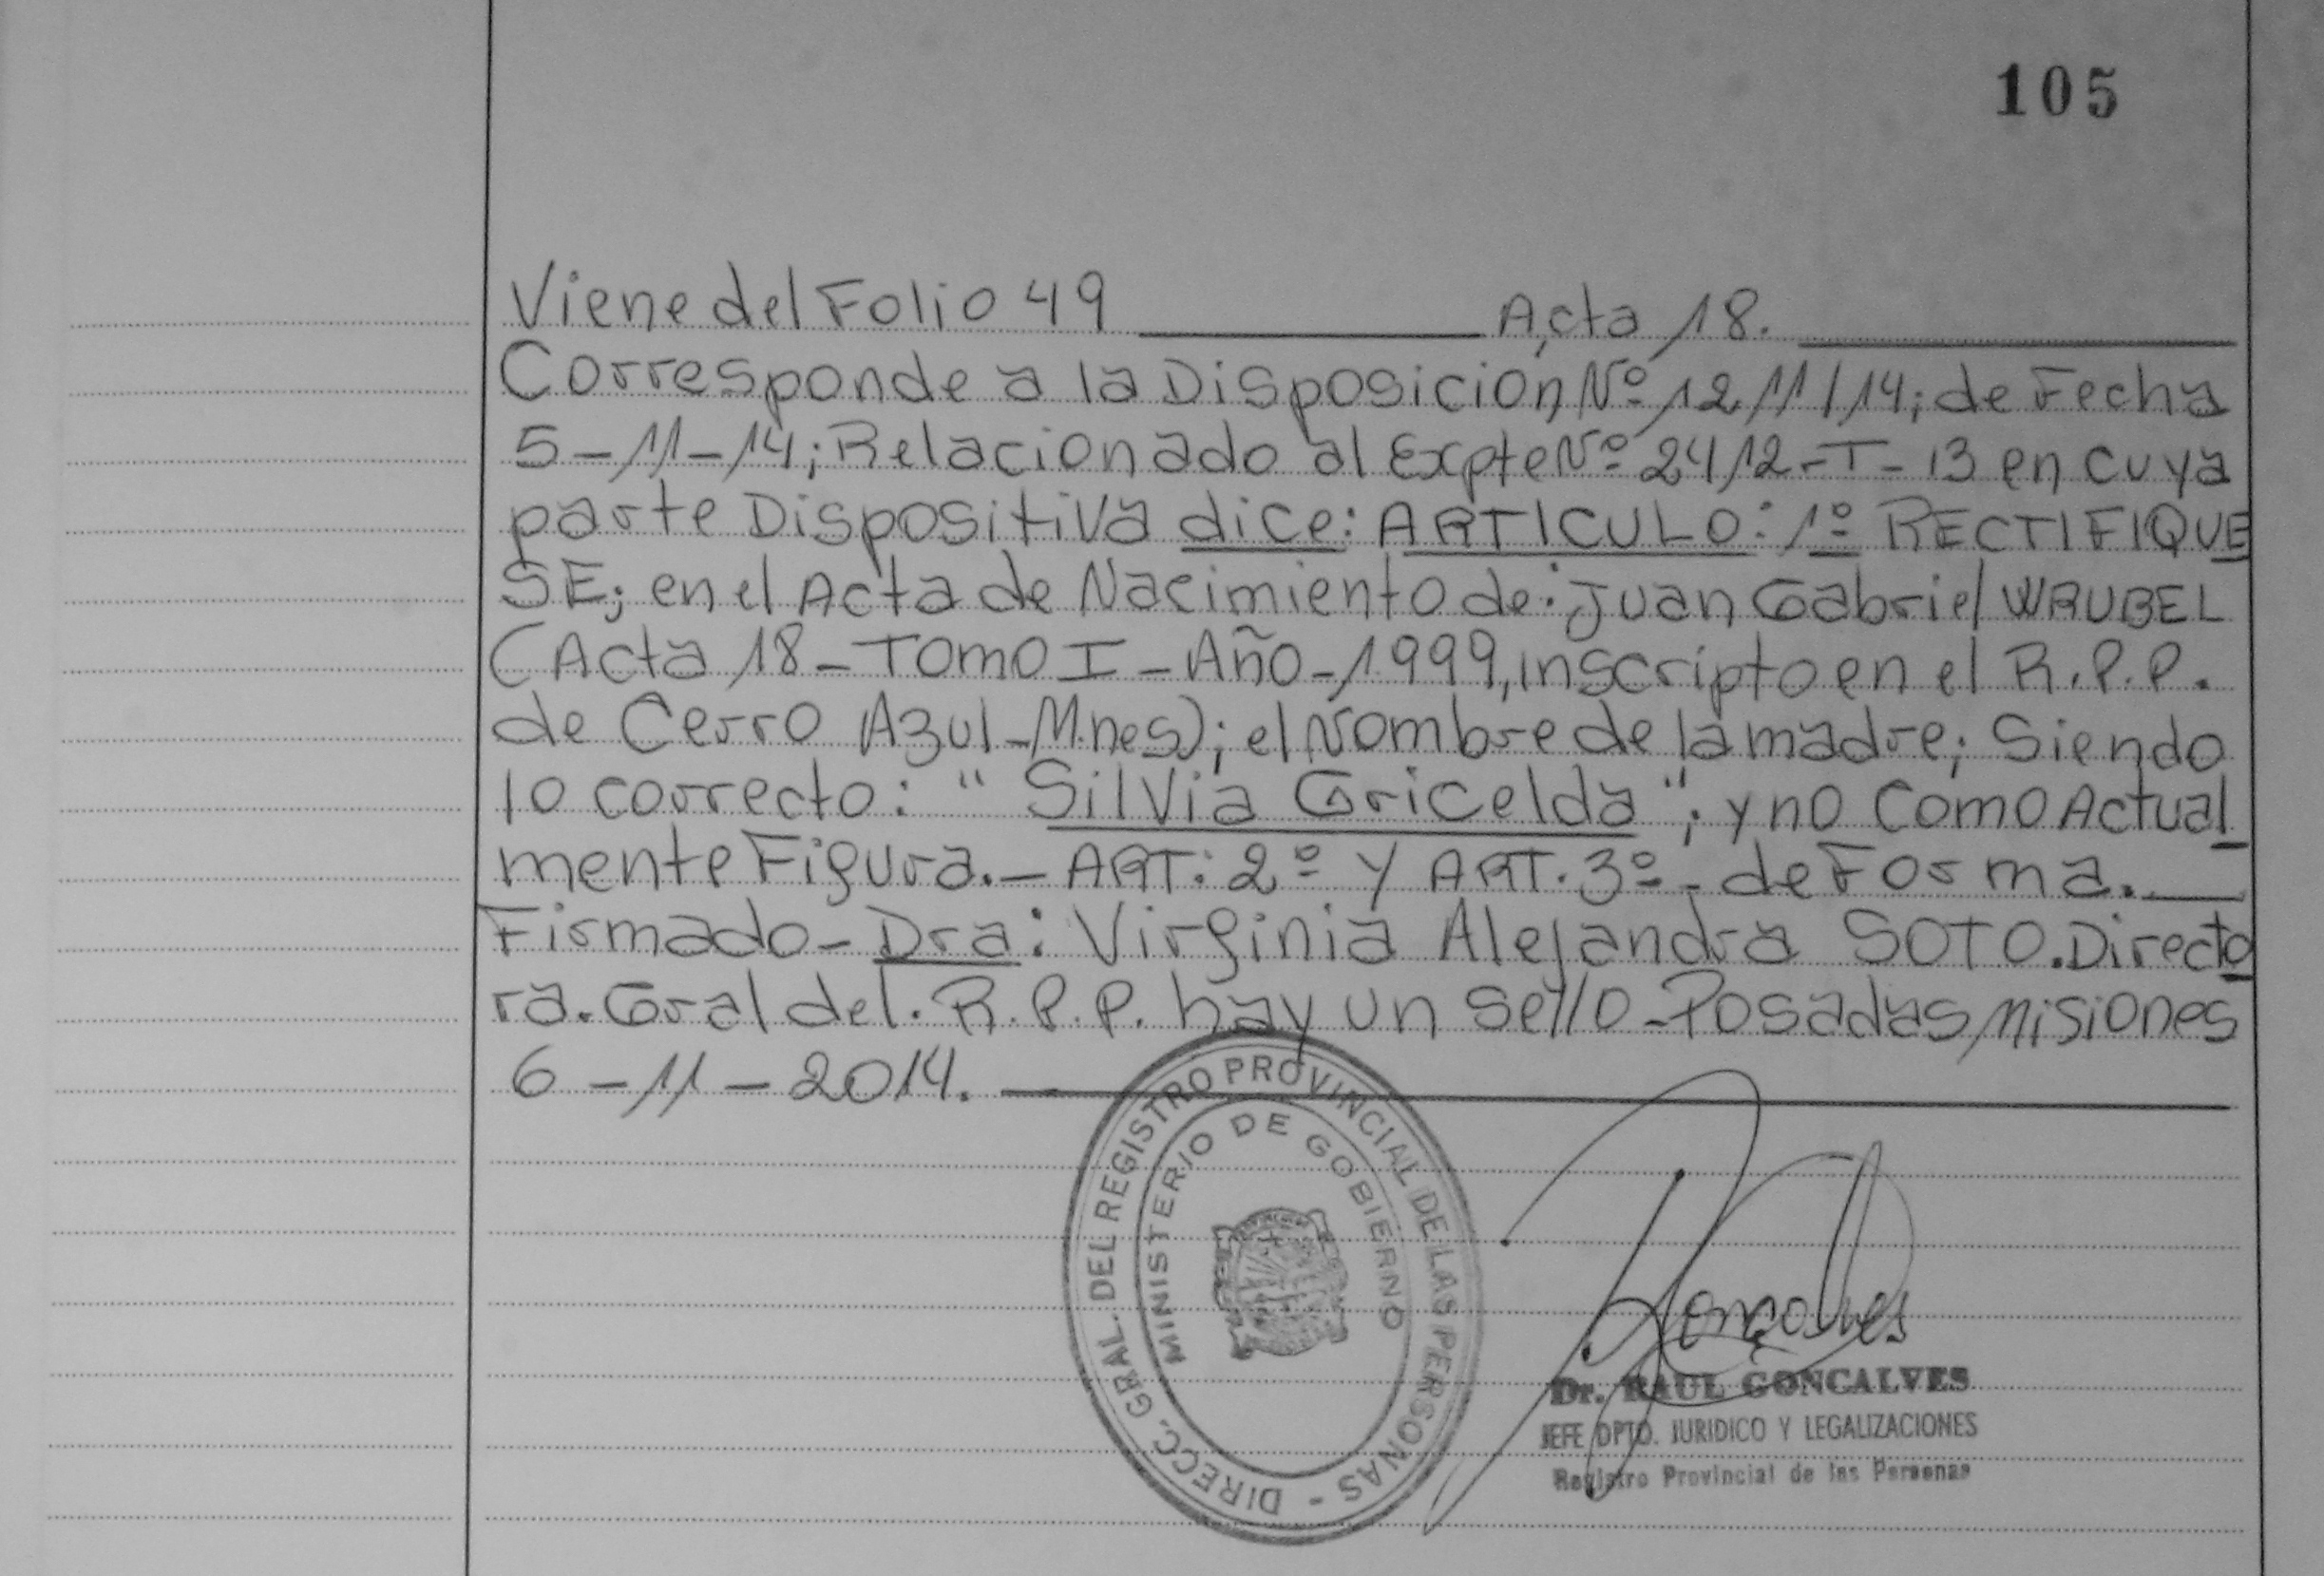 105
Viene del Folio 49 Acta 18.
Corresponde a la Disposición Nº 1211/14; de Fecha
5-11-14; Relacionado al Expte Nº 2412-T-13 en cuya
parte Dispositiva dice: ARTICULO: 1º RECTIFIQUE
SE; en el Acta de Nacimiento de: Juan Gabriel WRUBEL
(Acta 18-Tomo I-Año-1999, inscripto en el R.P.P.
de Cerro Azul-Mnes); el Nombre de la madre; Siendo
lo correcto: "Silvia Gricelda"; y no Como Actual
mente Figura.- ART: 2º y ART. 3º- de Forma.
Firmado- Dra: Virginia Alejandra SOTO. Directo
ra. Gral del. R.P.P. hay un sello-Posadas, Misiones
6-11-2014.
DIRECC. GRAL. DEL REGISTRO PROVINCIAL DE LAS PERSONAS -
MINISTERIO DE GOBIERNO
Goncalves
Dr. RAUL GONCALVES
JEFE DPTO. JURIDICO Y LEGALIZACIONES
Registro Provincial de las Personas